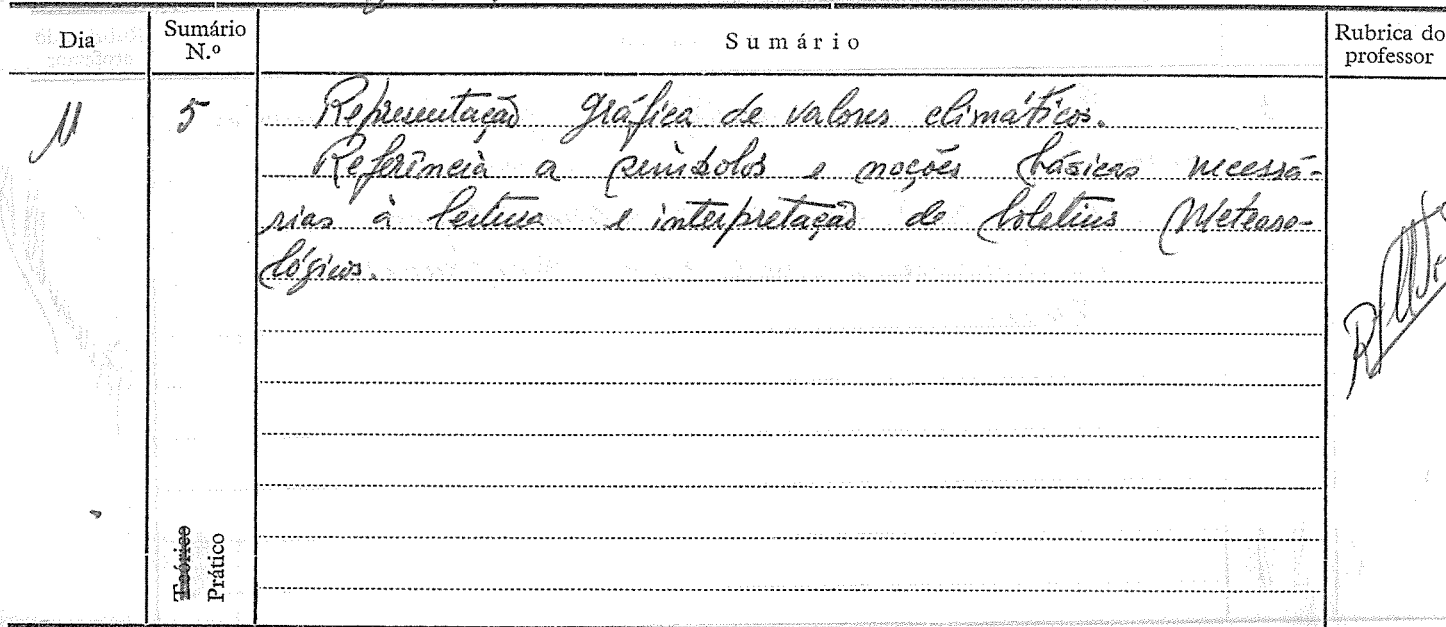 Dia Sumário N.º Sumário Rubrica do professor
11 5 Representação gráfica de valores climáticos.
Referência a símbolos e noções básicas necessá-
rias à leitura e interpretação de boletins Meteoro-
lógicos.
Teórico
Prático